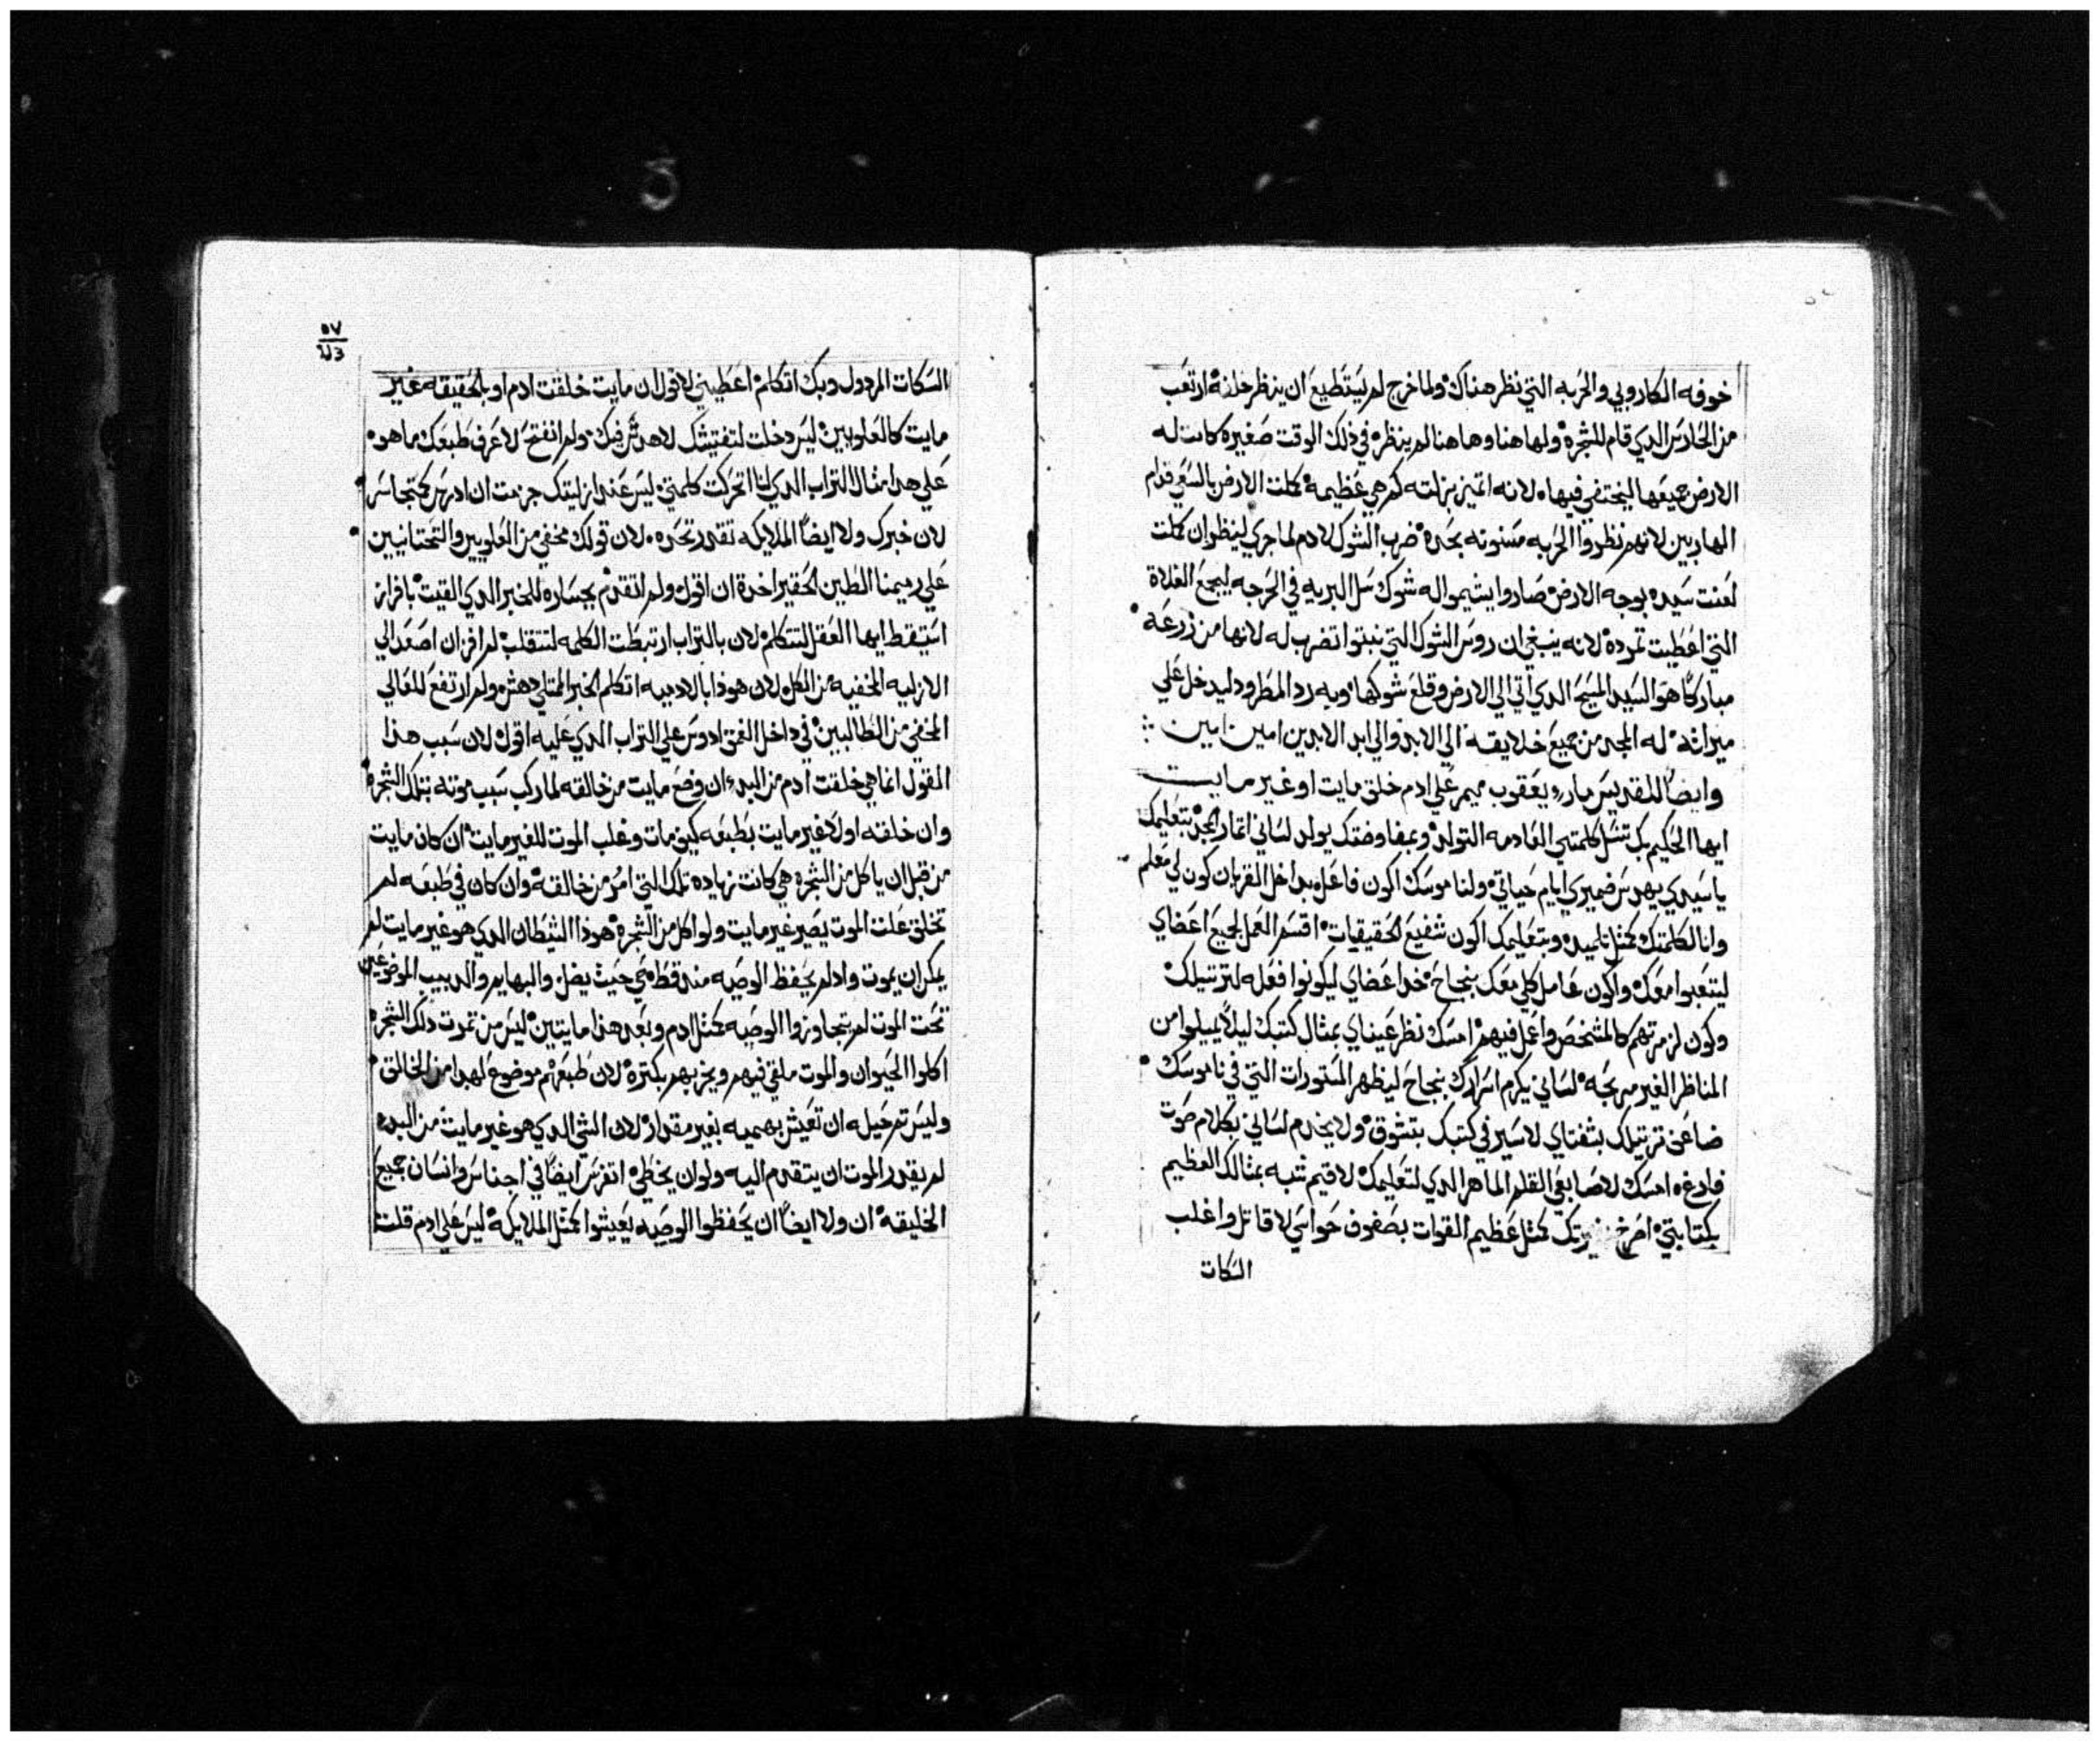 خوفه الكاروبي والحربه التي نظر هناك ولما خرج لم يستطيع ان ينظر خلفه ارتعب
من الحارس الدي قام للشجرة ولها هنا وها هنا لم ينظره في ذلك الوقت صغيره كانت له
الارض جميعها ليختفي فيها لانه اتميز بزلته كم هي عظيمه كملت الارض بالسعي قدام
الهاربين لانهم نظروا الحربه مسنونه بحده ضرب الشوك لادم لما جري لينظر ان كملت
لعنت سيده بوجه الارض صاروا يشيموا له شوك سل البريه في الحرجه ليجمع الغلاة
التي اعطيت تمرده لانه ينبغي ان روس الشوك التي نبتوا تضرب له لانها من زرعه
مباركًا هو السيد المسيح الدي أتي الي الارض وقلع شوكها وبه رد المطرود ليدخل علي
ميراثه له المجد من جميع خلايقه الي الابد والي ابد الابدين امين امين
وايضًا للقديس مار يعقوب ميمر علي ادم خلق مايت او غير مايت
ايها الحكيم بك تنسل كلمتي العادمه التولد وبمفاوضتك يولد لساني اتمار المجد بتعليمك
يا سيدي يهدس ضميري أيام حياتي ولناموسك اكون فاعل بداخل القربان كون لي معلم
وانا لكلمتك كمثل تلميد وبتعليمك اكون شفيع الحقيقيات اقسم العمل لجميع اعضاي
ليتعبوا معك واكون عامل كلي معك بنجاح خد اعضاي ليكونوا فعله لترتيلك
وكون لزمرتهم كالمشخص واعمل فيهم امسك نظر عيناي بمثال كتبك ليلا يميلوا من
المناظر الغير مربحه لساني يكرم اسرارك بنجاح ليظهر المستورات التي في ناموسك
ضاعف ترتيلك بشفتاي لاسير في كتبك بتشوق ولا يخدم لساني بكلام صوت
فارغه امسك لاصابعي القلم الماهر الدي لتعليمك لاقيم شبه بمثالك العظيم
بكتابتي امزج كمثل عظيم القوات بصفوف حواسي لاقاتل واغلب
السكات
٥٧
السكات المردول وبك اتكلم اعطيني لاقول ان مايت خلقت ادم او بالحقيقه غير
مايت كالعلويين ليس دخلت لتفتيشك لاهدس فيك ولم انفتح لاعرف طبعك ما هو
علي هدا مثال التراب الدي انا اتحركت كلمتي ليس عند ازليتك جزمت ان ادرس كمتجاسر
لان خبرك ولا ايضًا الملايكه تقدر تحده لان قولك مخفي من العلويين والتحتانيين
علي رسمنا الطين الحقير اخدة ان اقول ولم اتقدم بجساره للخبر الدي القيت بافراز
استيقظ ايها العقل لتتكلم لان بالتراب ارتبطت الكلمه لتتقلب لم افر ان اصعد الي
الازليه المخفيه من الكل لان هوذا بالادميه اتكلم الخبر الممتلي دهش ولم ارتفع للعالي
المخفي من الطالبين في داخل العمق ادوس علي التراب الدي عليه اقول لان سبب هذا
القول انما هي خلقت ادم من البدء ان وضع مايت من خالقه لما ركب سبب موته بتلك الشجرة
وان خلقته اولًا غير مايت بطبعه كيف مات وغلب الموت للغير مايت ان كان مايت
من قبل ان ياكل من الشجره هي كانت زياده تلك التي امر من خالقه وان كان في طبعه لم
تخلق علت الموت يصير غير مايت ولو اكل من الشجره هوذا الشيطان الدي هو غير مايت لم
يمكن ان يموت واد لم يحفظ الوصيه مند قط هي حيث يضل والبهايم والدبيب الموضوعين
تحت الموت لم يتجاوزوا الوصيه كمثل ادم وبعد هذا مايتين ليس من تمرت ذلك الشجره
اكلوا الحيوان والموت ملقي فيهم ويخزبهم بكترة لان طبعهم موضوع لهدا من الخالق
وليس تم حيله ان تعيش بهميه بغير مقدار لان الشي الدي هو غير مايت من البده
لم يقدر الموت ان يتقدم اليه ولو ان يخطي اتفرس ايضًا في اجناس وانسان جميع
الخليقه ان ولا ايضًا ان يحفظوا الوصيه يعيشوا كمثل الملايكه ليس علي ادم قلت